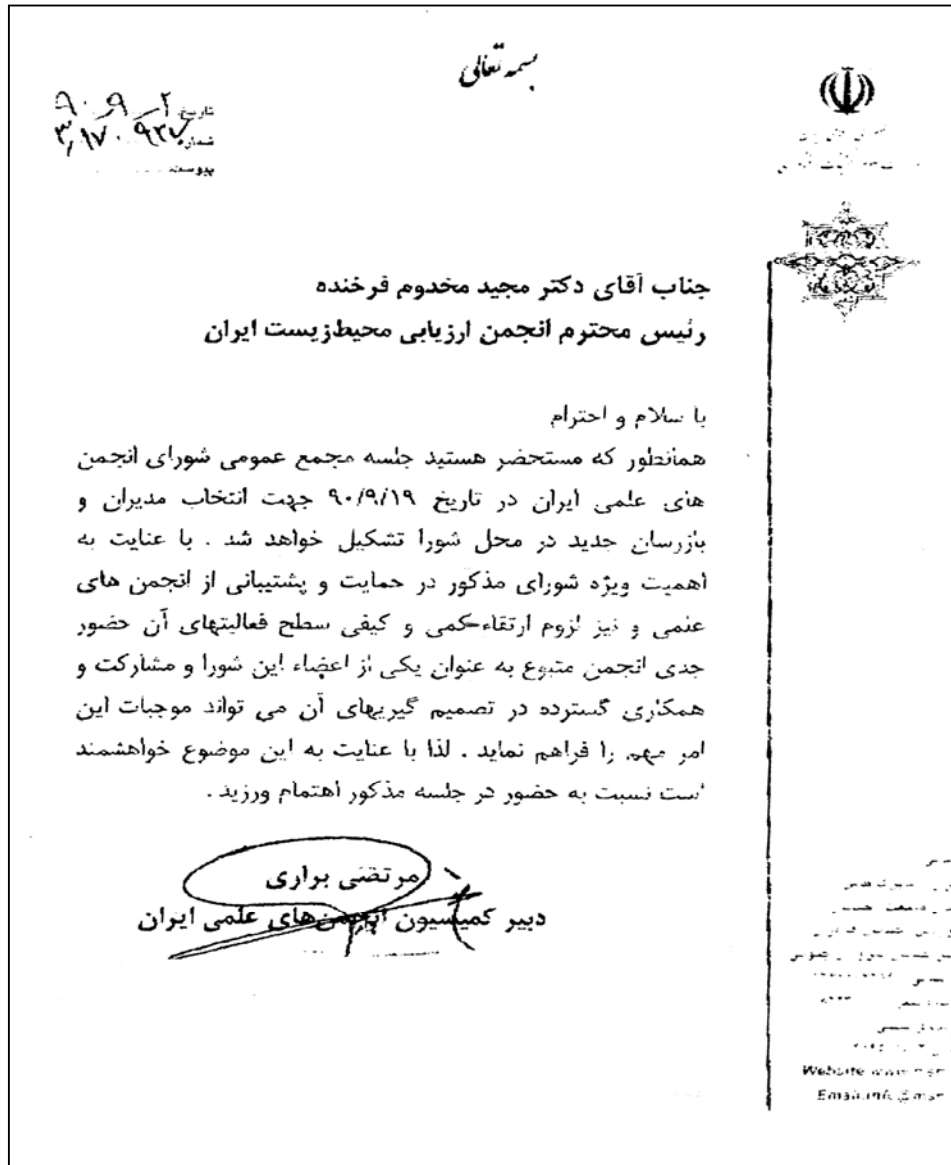 بسمه تعالی
تاریخ ۹۰/۹/۲
شماره
پیوست
جناب آقای دکتر مجید مخدوم فرخنده
رئیس محترم انجمن ارزیابی محیط‌زیست ایران
با سلام و احترام
همانطور که مستحضر هستید جلسه مجمع عمومی شورای انجمن
های علمی ایران در تاریخ ۹۰/۹/۱۹ جهت انتخاب مدیران و
بازرسان جدید در محل شورا تشکیل خواهد شد . با عنایت به
اهمیت ویژه شورای مذکور در حمایت و پشتیبانی از انجمن های
علمی و نیز لزوم ارتقاء کمی و کیفی سطح فعالیتهای آن حضور
جدی انجمن متبوع به عنوان یکی از اعضاء این شورا و مشارکت و
همکاری گسترده در تصمیم گیریهای آن می تواند موجبات این
امر مهم را فراهم نماید . لذا با عنایت به این موضوع خواهشمند
است نسبت به حضور در جلسه مذکور اهتمام ورزید .
مرتضی براری
دبیر کمیسیون انجمن‌های علمی ایران
Website
Email:info@msrt